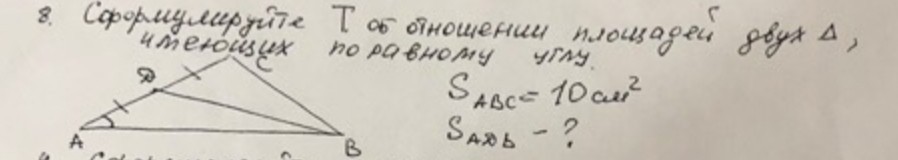 8. Сформулируйте Т об отношении площадей двух Δ,
имеющих по равному углу.
C
D
S ABC = 10 см²
S ADB - ?
A
B